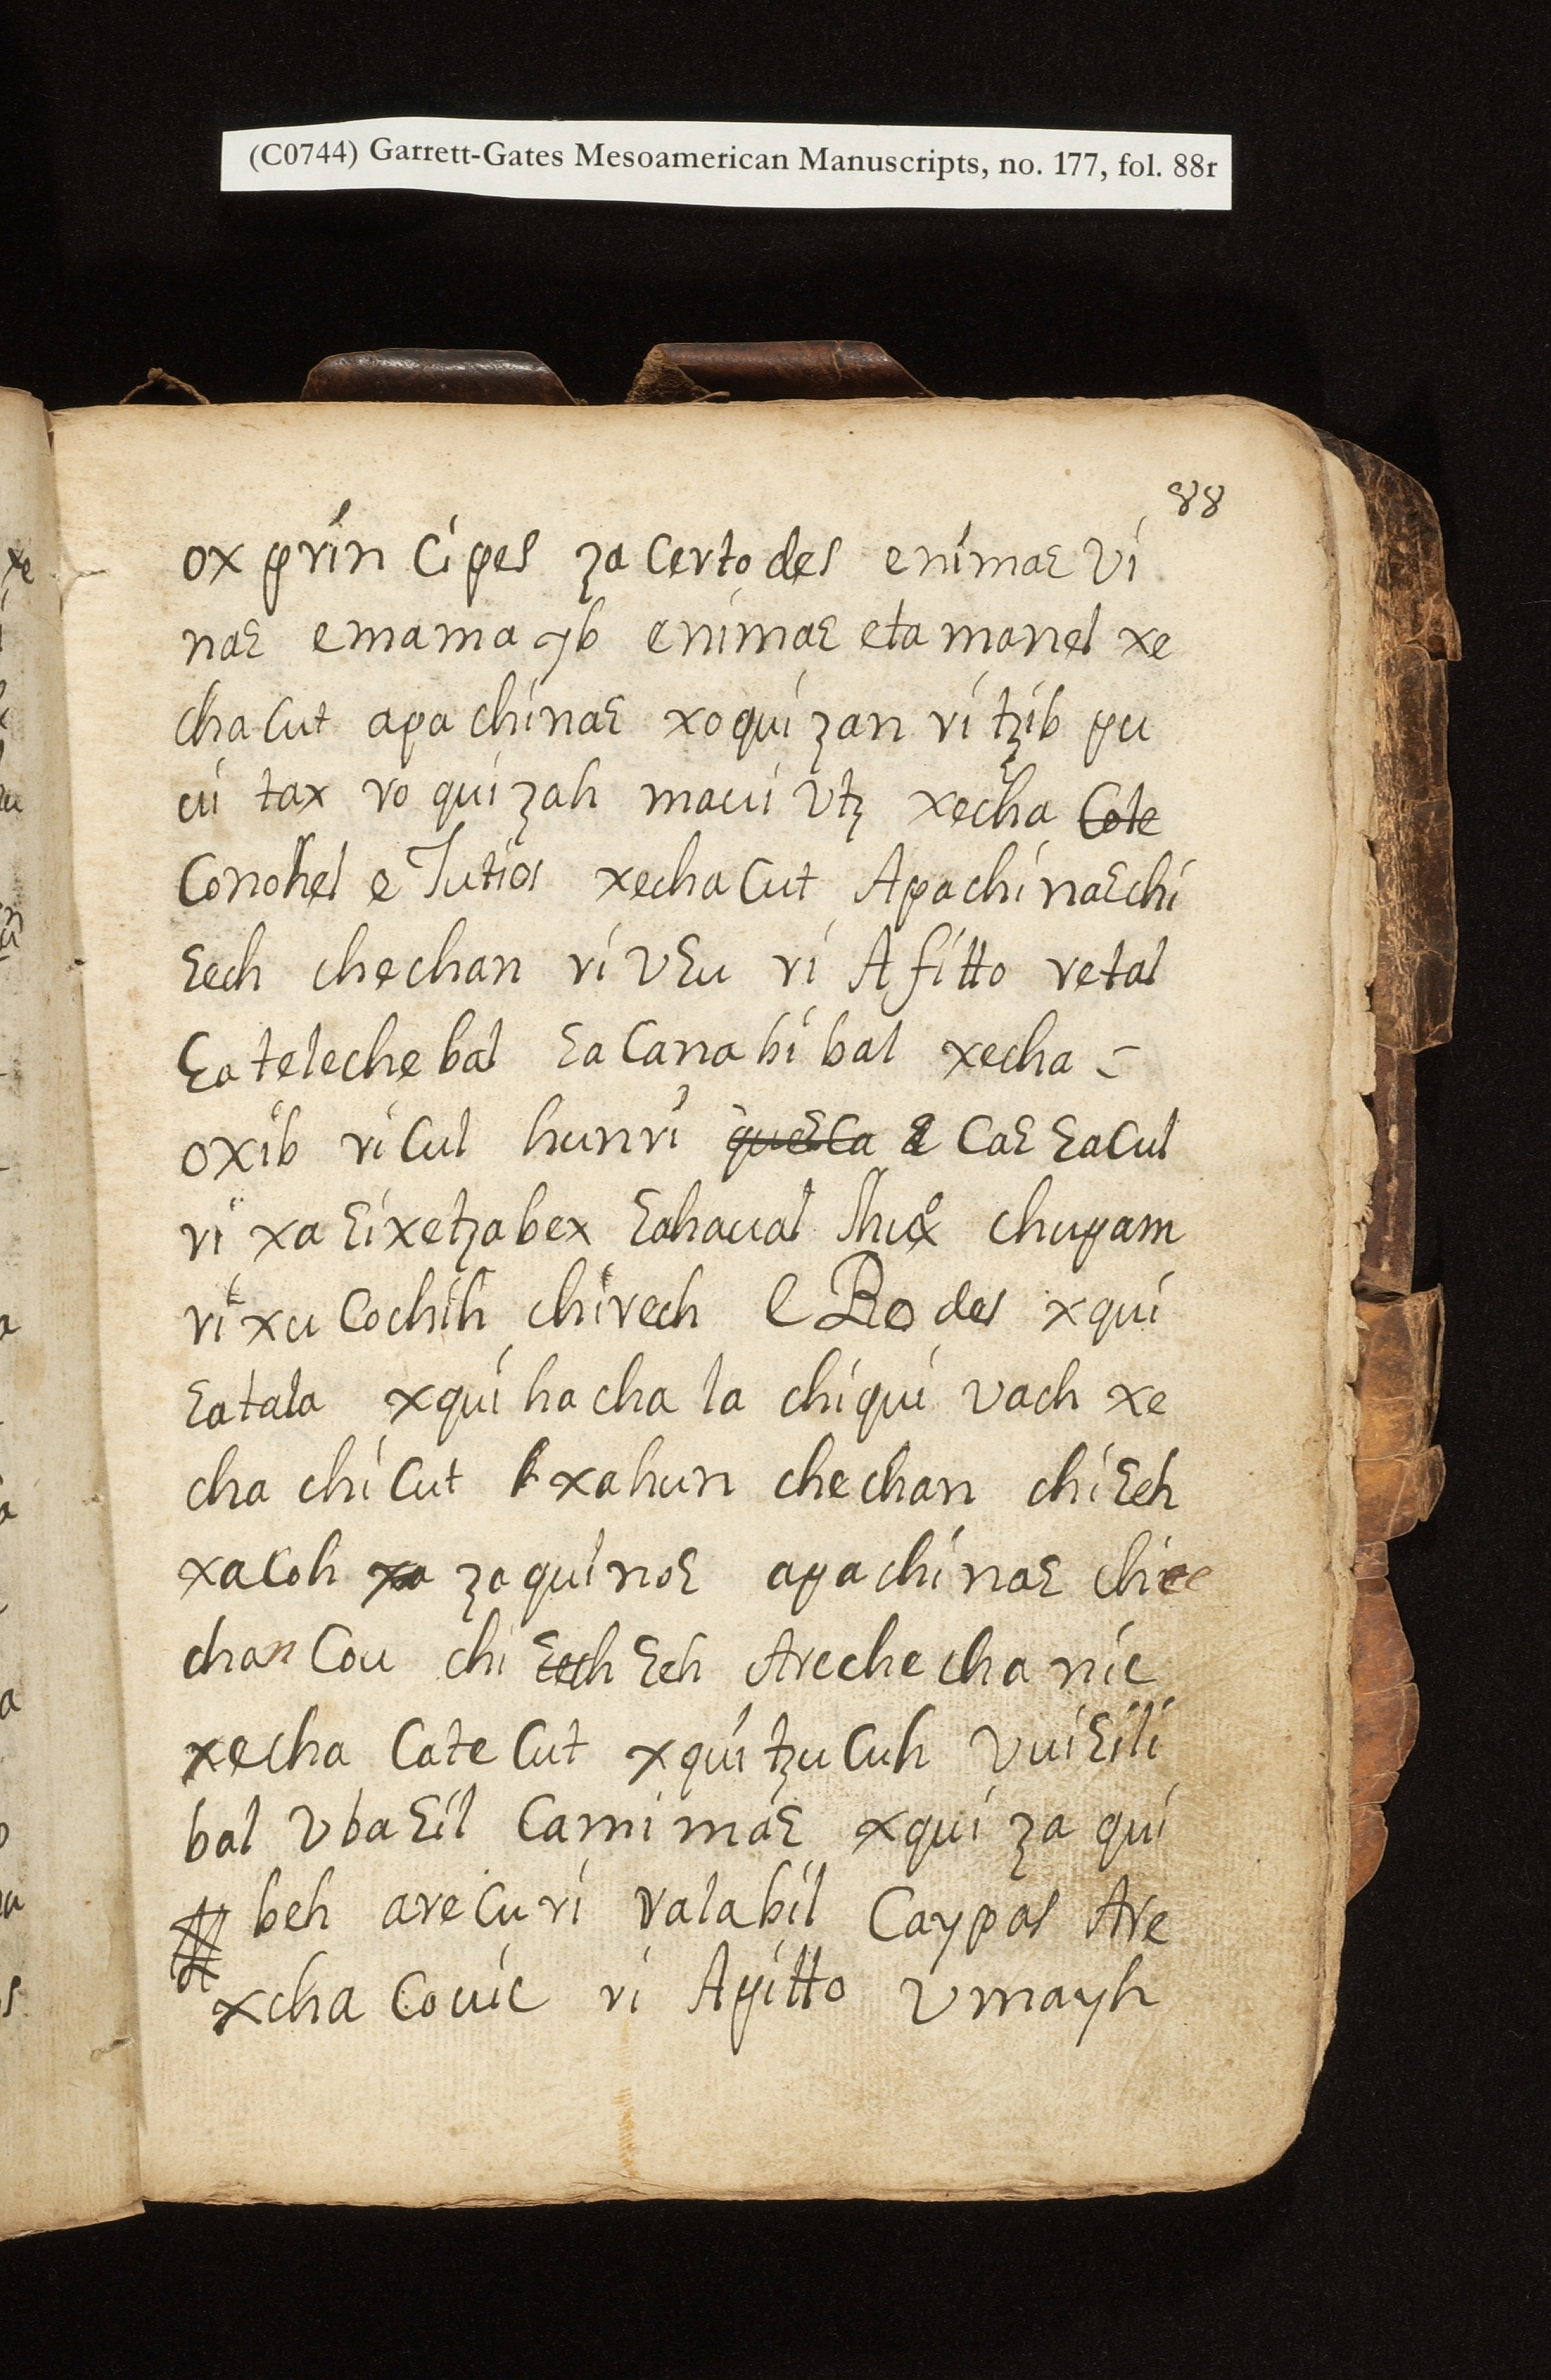 (C0744) Garrett-Gates Mesoamerican Manuscripts, no. 177, fol. 88r
88
ox prin Cipes za Certo des enimaɛ vi
naɛ emama yb enimaɛ eta manel xe
cha Cut apa chinaɛ xo qui zan ri tzib pu
cui tax ro qui zah macui vtz xecha Cote
Conohel e Jutios xecha Cut Apachi naɛchi
ɛech chechan ri vɛu ri A fitto retal
ɛa teleche bal ɛa Cana bi bal xecha –
oxib ri Cul hunri queɛCa Caɛ ɛaCul
ri xa ɛixetzabex ɛahaual chupam
ri xu Cochih chirech e Ro des xqui
ɛatala xqui ha cha la chiqui vach xe
cha chi Cut xahun chechan chi ɛeh
xaCoh xa zaquinoɛ apachinaɛ chie
chan Cou chi ɛech ɛeh Areche cha nic
xecha Cate Cut xqui tzu Cuh Vui ɛili
bal Vba ɛil Cami maɛ xqui za qui
beh are Cu ri Valabil Caypas Are
xcha Couic ri Apitto Vmayh